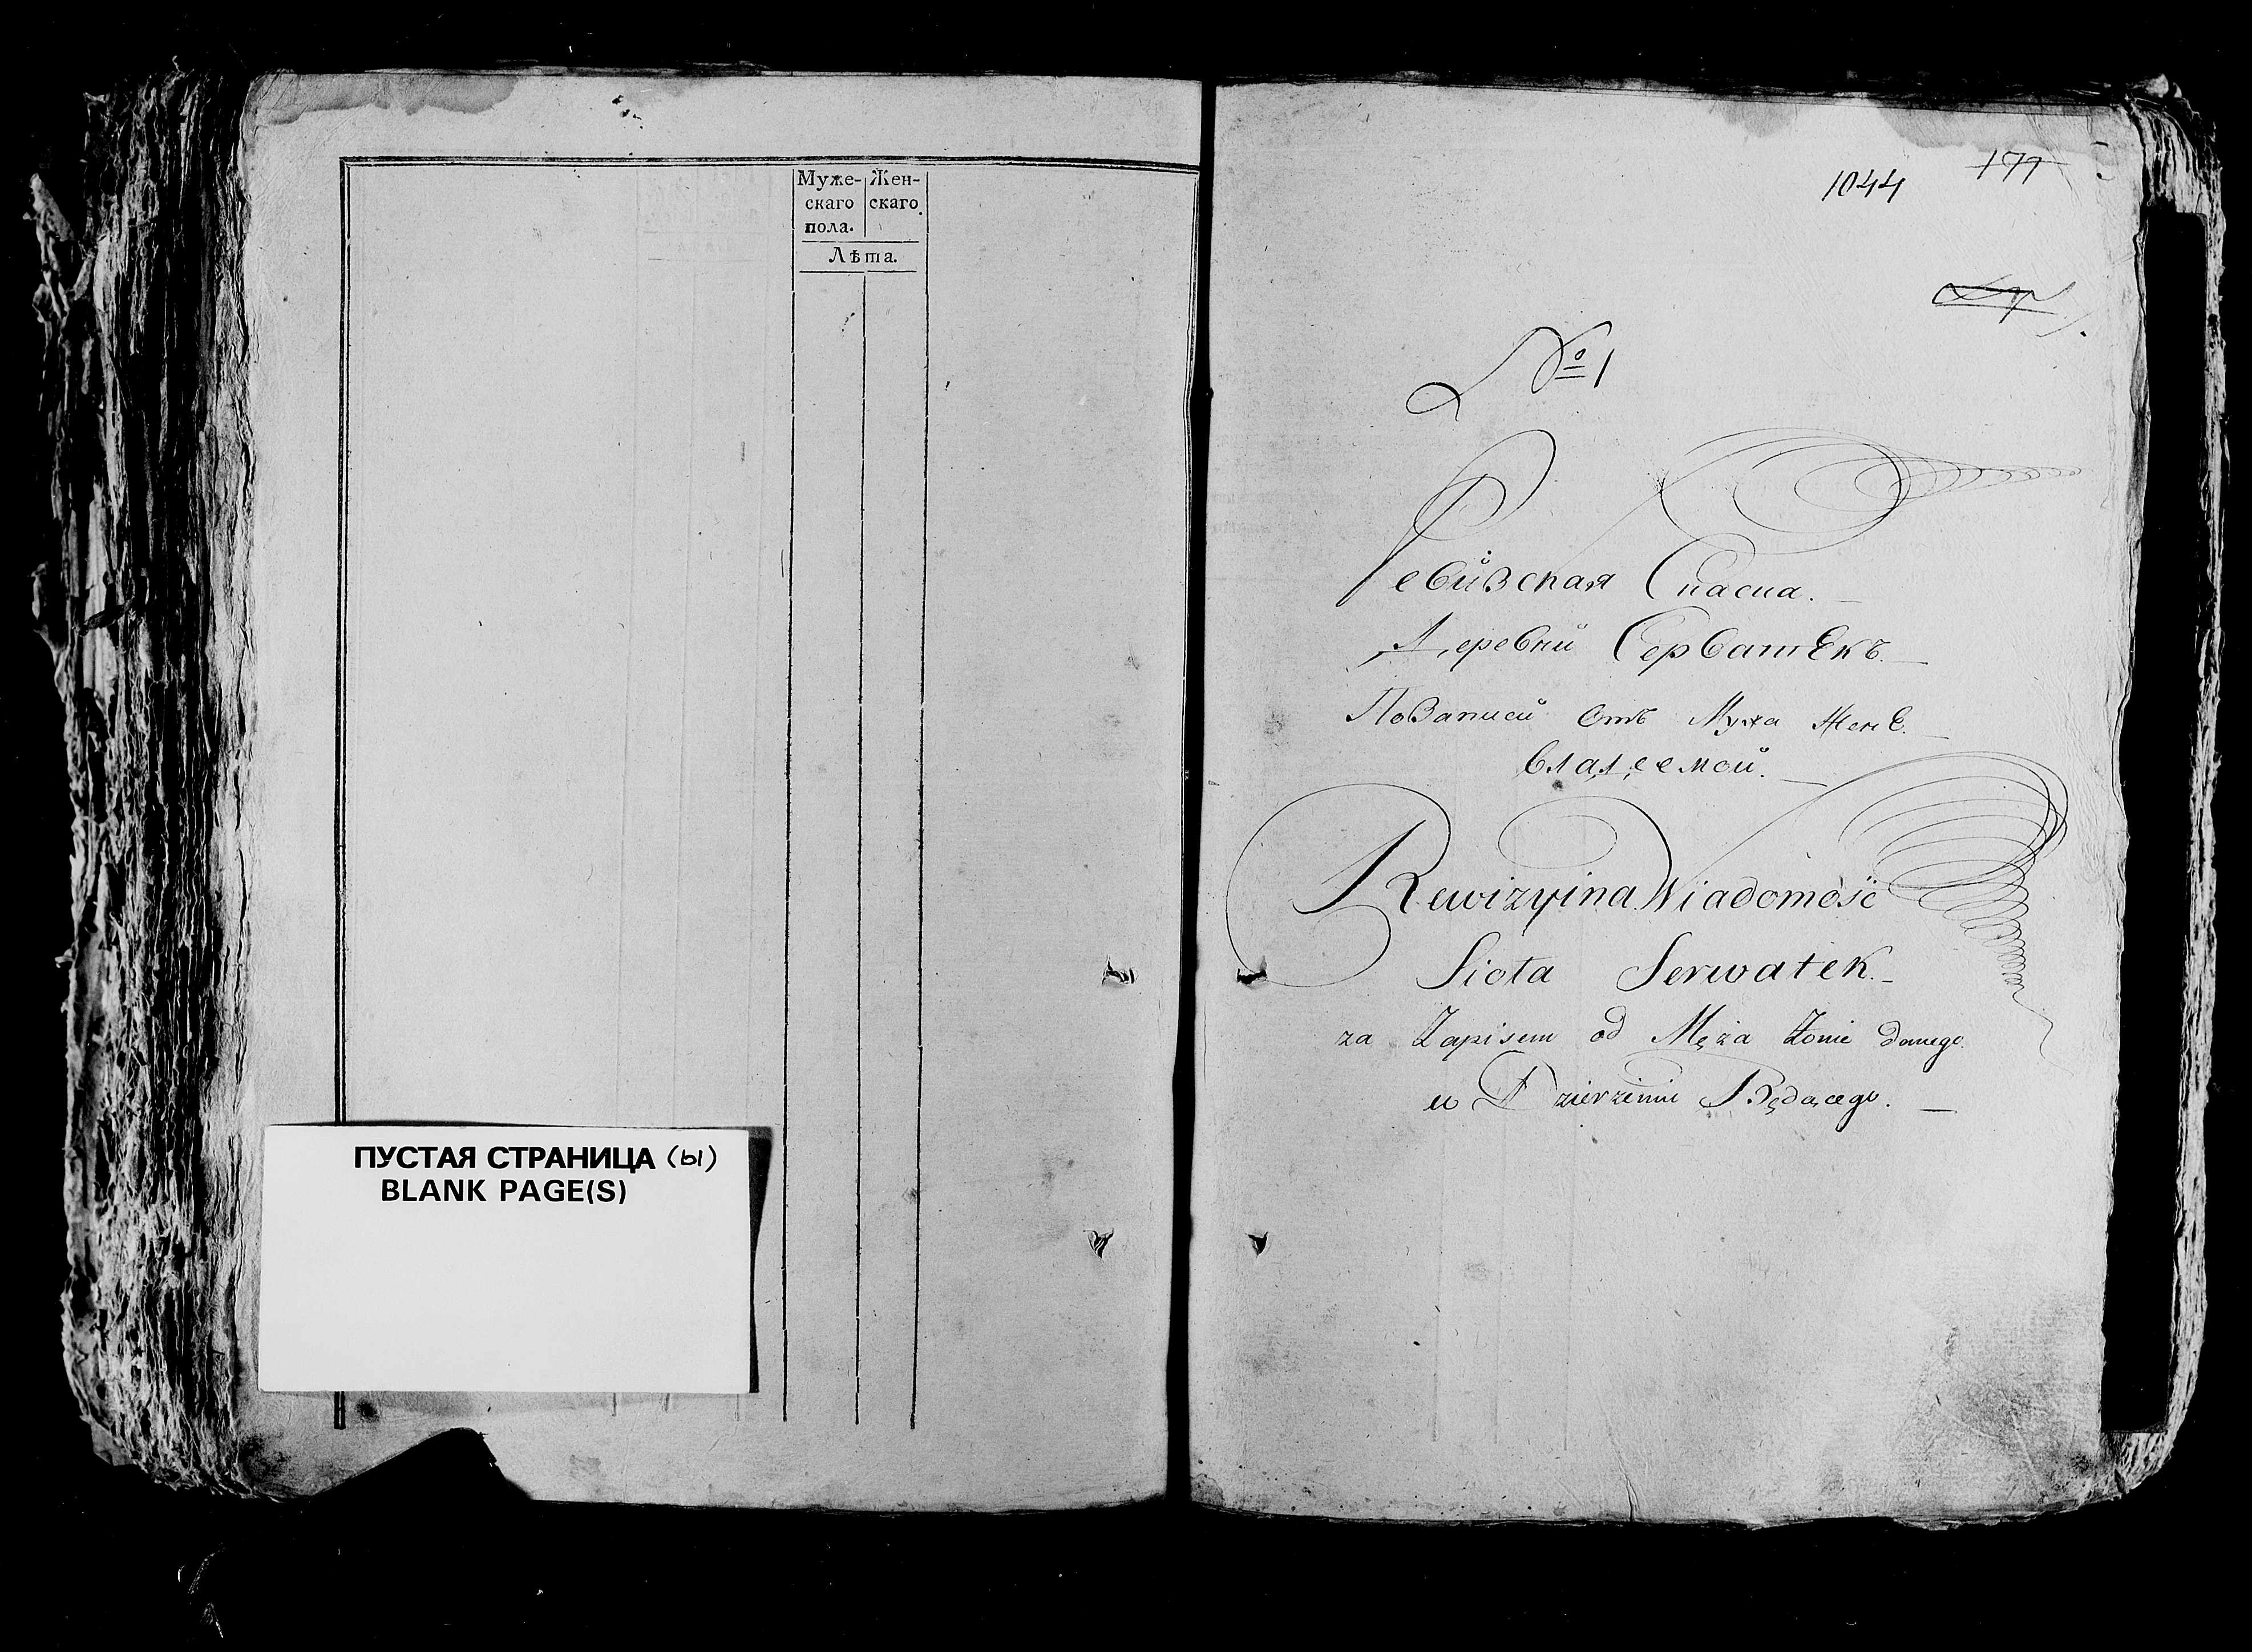 Муже-
скаго
пола.
Жен-
скаго.
Лѣта.
ПУСТАЯ СТРАНИЦА (ы)
BLANK PAGE(S)
1044
179
№ 1
Ревизская Скаска.
Деревни Серватѣкъ.
По Записи Отъ Мужа Женѣ.
владеемой.
Rewizyina Wiadomość
Sioła Serwatek.
za Zapisem od Męża Żonie danego
w Dzierżeniu Będącego.